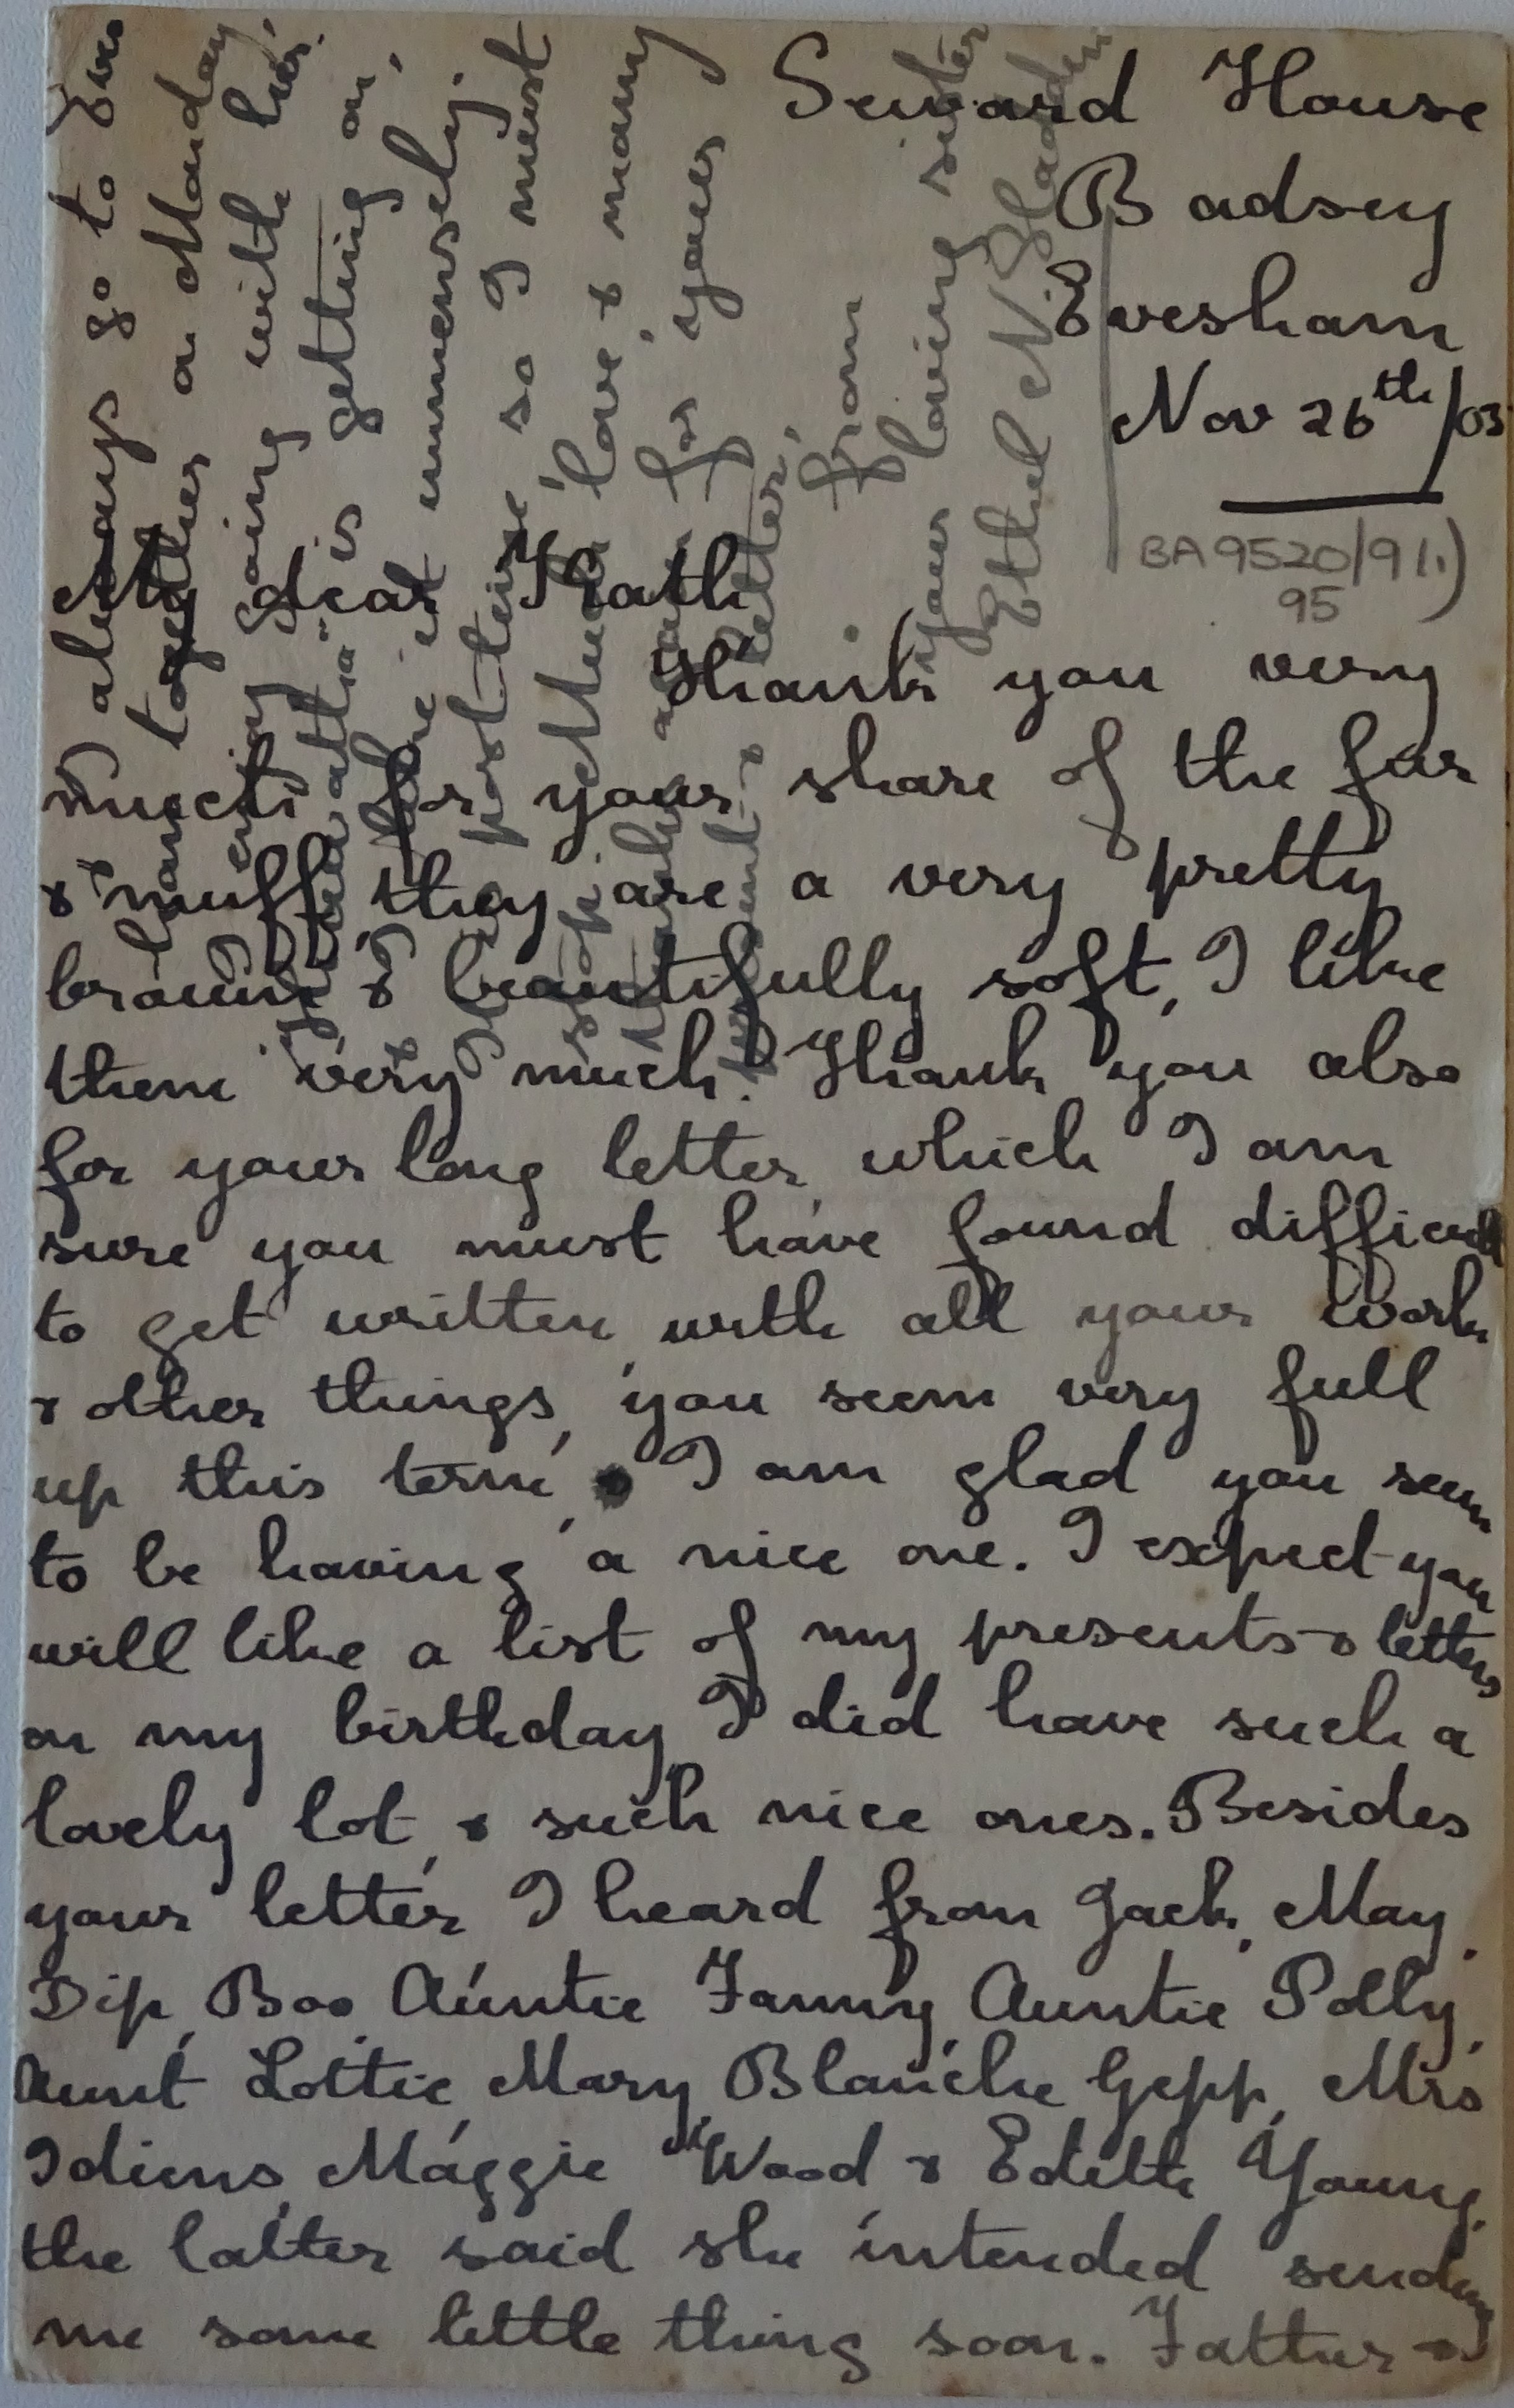 Seward House
Badsey
Evesham
Nov 26th/03
BA 9520/9 1.)
95
My dear Kath
Thank you very
much for your share of the fur
& muff, they are a very pretty
brown & beautifully soft, I like
them very much. Thank you also
for your long letter, which I am
sure you must have found difficult
to get written, with all your work
& other things, you seem very full
up this term, I am glad you seem
to be having a nice one. I expect you
will like a list of my presents & letters
on my birthday, I did have such a
lovely lot, & such nice ones. Besides
your letter I heard from Jack, May,
Dip, Boo, Auntie Fanny, Auntie Polly,
Aunt Lottie, Mary, Blanche Gepp, Mrs
Idiens, Maggie Wood & Edith Young,
the latter said she intended sending
me some little thing soon. Father &
I always go to Eve
together on Monday
enjoy going with her.
is getting on,
& I love it immensely.
post time so I must
stop. Much love & many
thanks again for your
present & letter,
from
your loving sister
Ethel N Sladden